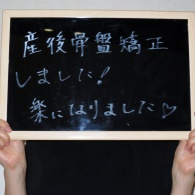 産後骨盤矯正
しました!
楽になりました♡